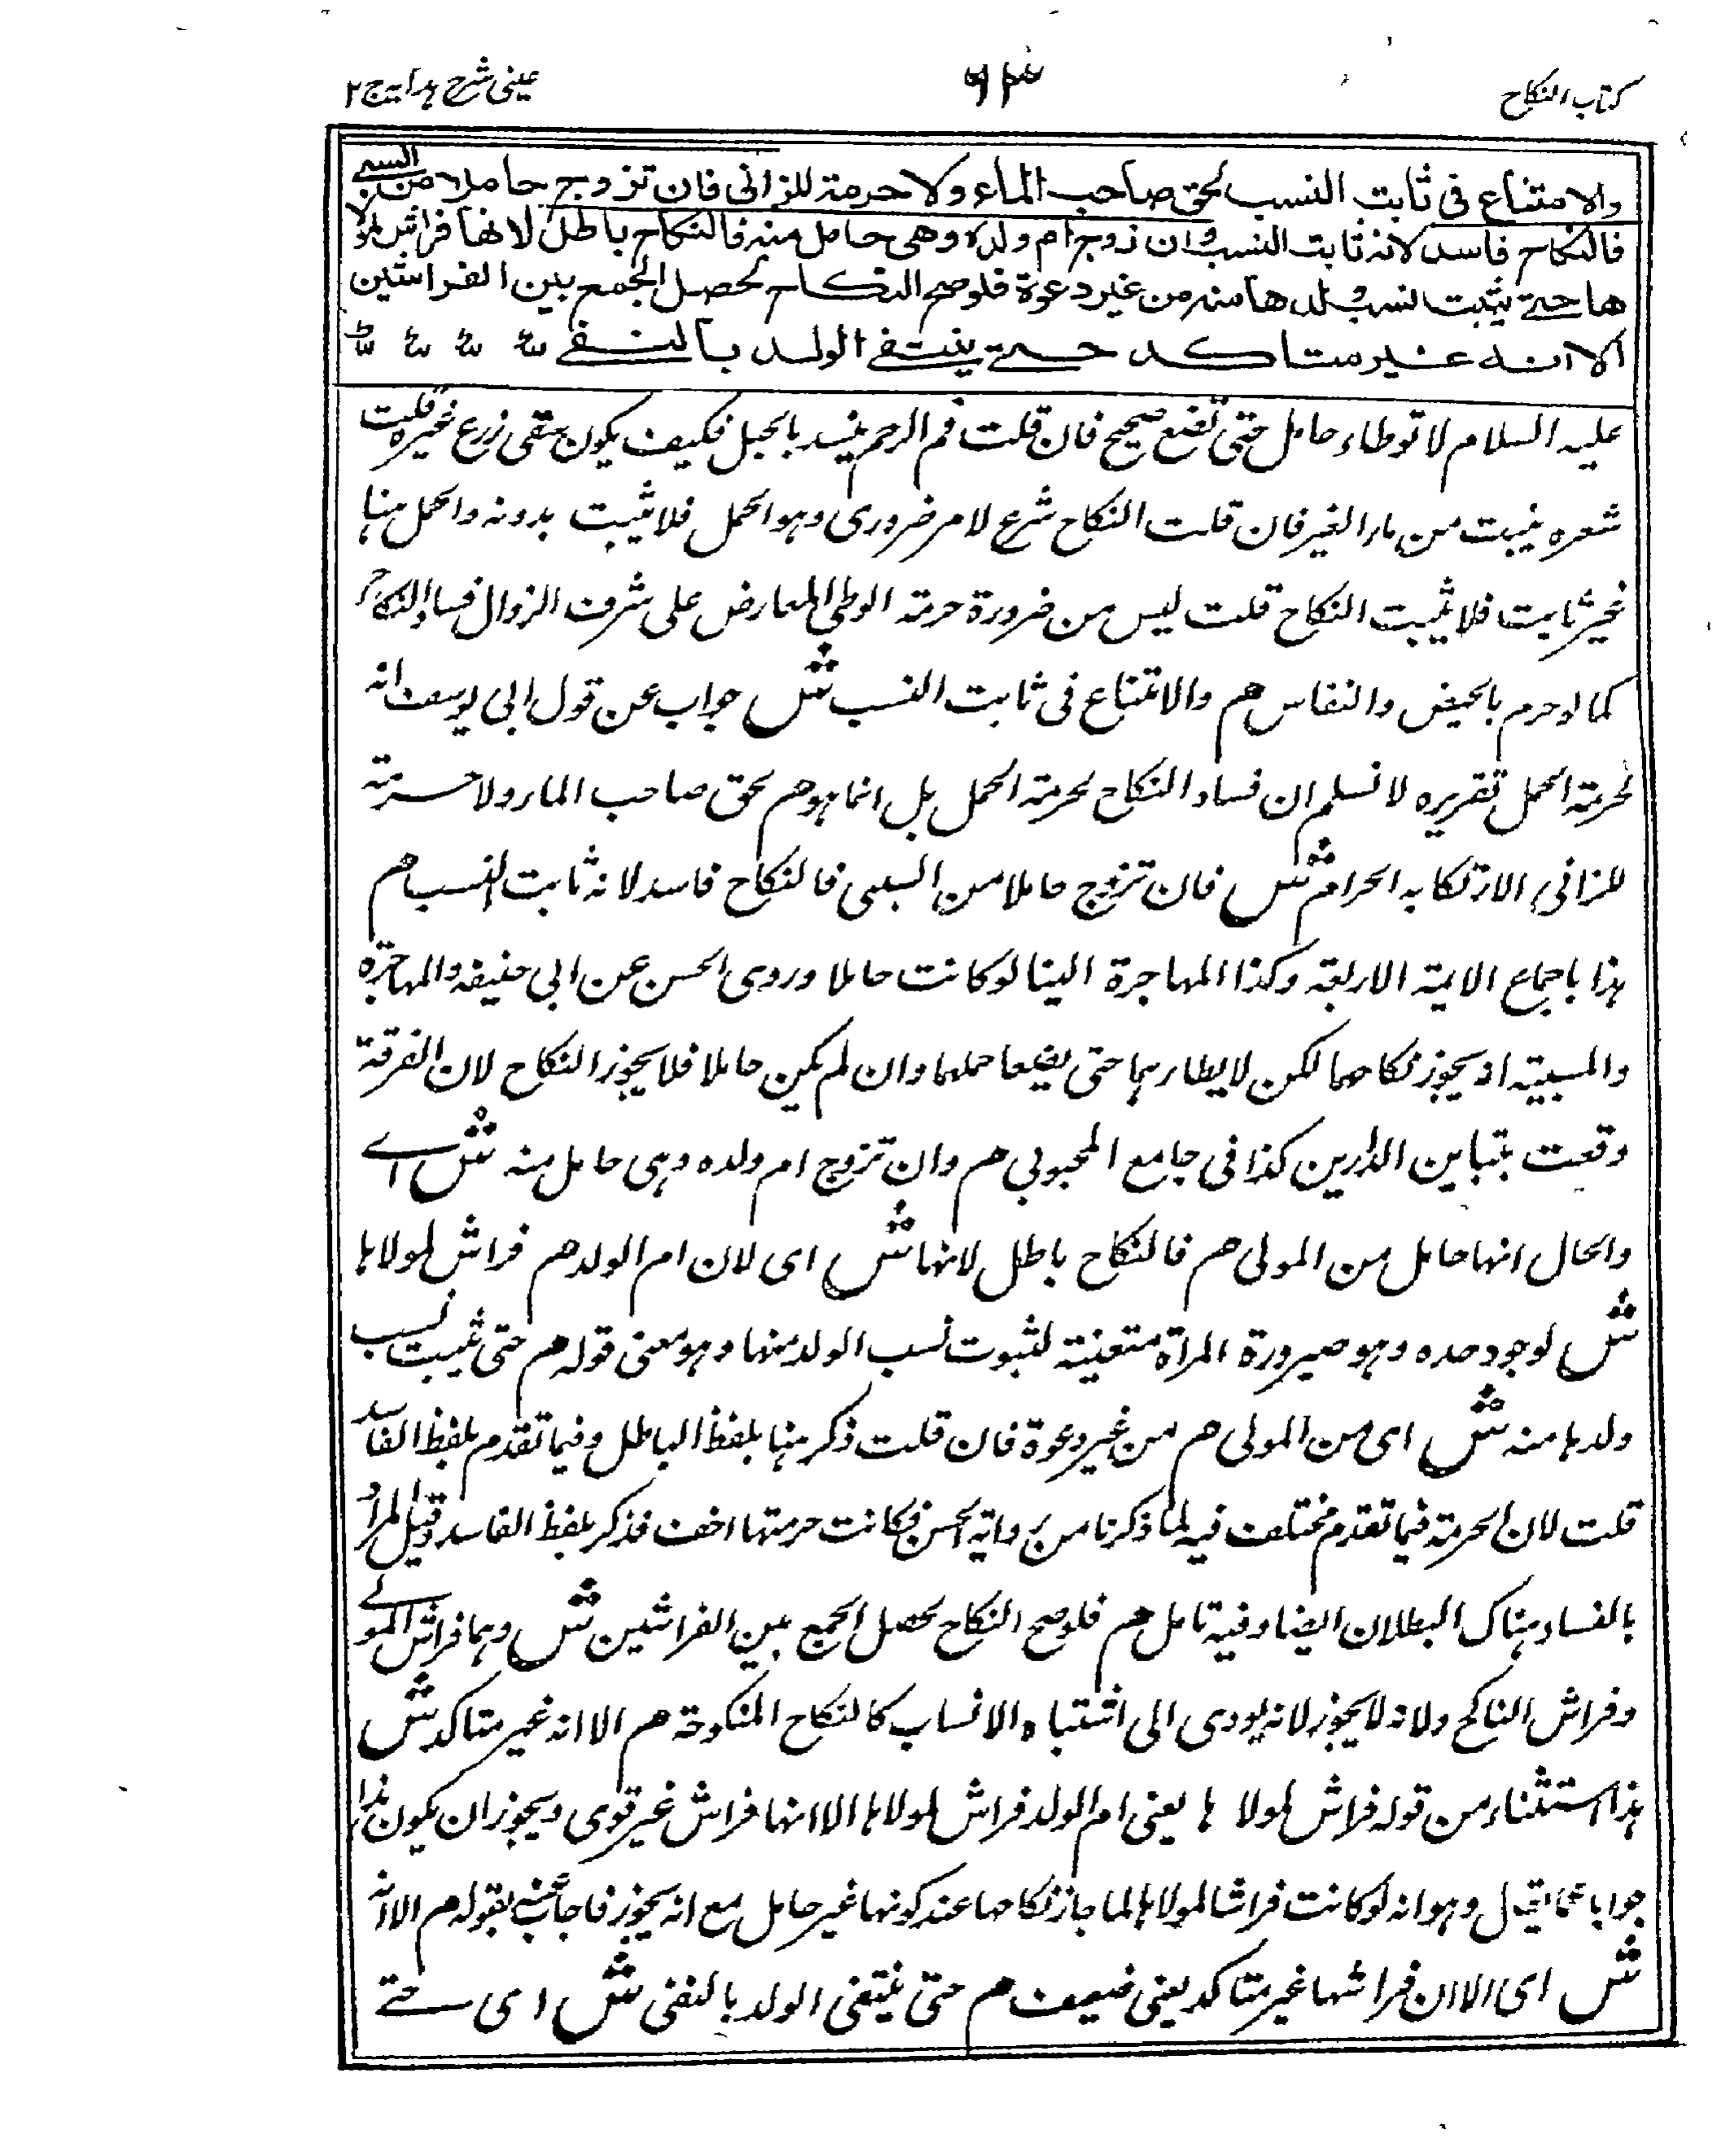 كتاب النكاح
٦٣
عينى شرح هدايه ج ٢
والامتناع فى ثابت النسب لحق صاحب الماء ولا حرمة للزانى فان تزوج حاملا من السبى
فالنكاح فاسد لانه ثابت النسب وان زوج ام ولده وهى حامل منه فالنكاح باطل لانها فراش لمولا
ها حتے يثبت نسب ولدها منه من غير دعوة فلو صح النكاح لحصل الجمع بين الفراشين
الا انه غير متاكد حتے ينتفے الولد بالنفے
عليه السلام لا توطاء حامل حتى تضع صحيح فان قلت فم الرحم ينسد بالحبل فكيف يكون يسقى زرع غيره قلت
شعره ينبت من ماء الغير فان قلت النكاح شرع لامر ضرورى وهو الحمل فلا يثبت بدونه والحمل هنا
غير ثابت فلا يثبت النكاح قلت ليس من ضرورة حرمة الوطى المعارض على شرف الزوال فساد النكاح
كما لو حرم بالحيض والنفاس هم والامتناع فى ثابت النسب ش جواب عن قول ابى يوسف انه
لحرمة الحمل تقريره لا نسلم ان فساد النكاح لحرمة الحمل بل انما هو هم لحق صاحب الماء ولا حرمة
للزانى الارتكابه الحرام ش فان تزوج حاملا من السبى فالنكاح فاسد لانه ثابت النسب هم
هذا باجماع الايمة الاربعة وكذا المهاجرة الينا لو كانت حاملا وروى الحسن عن ابى حنيفه والمهاجرة
والمسبية انه يجوز نكاحهما لكن لا يطارهما حتى يضعا حملهما وان لم يكن حاملا فلا يجوز النكاح لان الفرقة
وقعت بتباين الدارين كذا فى جامع المحبوبى هم وان تزوج ام ولده وهى حامل منه ش اے
والحال انها حامل من المولى هم فالنكاح باطل لانها ش اى لان ام الولد هم فراش لمولاها
ش لوجود حده وهو صيرورة المرأة متعينة لثبوت نسب الولد منها وهو معنى قوله هم حتى يثبت نسب
ولدها منه ش اى من المولى هم من غير دعوة فان قلت ذكر هنا بلفظ الباطل وفيما تقدم بلفظ الفاسد
قلت لان الحرمة فيما تقدم مختلف فيه لما ذكرنا من رواية الحسن فكانت حرمتها اخف فذكر بلفظ الفاسد وقيل المراد
بالفساد هناك البطلان ايضا وفيه تامل هم فلو صح النكاح لحصل الجمع بين الفراشين ش وهما فراش المولے
وفراش الناكح ولانه لا يجوز لانه يودى الى اشتباه الانساب كالنكاح المنكوحة هم الا انه غير متاكد ش
هذا استثناء من قوله فراش لمولا ها يعنى ام الولد فراش لمولاها الا انها فراش غير قوى ويجوز ان يكون هذا
جوابا عما يقال وهو انه لو كانت فراشا لمولاها لما جاز نكاحها عند كونها غير حامل مع انه يجوز فاجاب عنه بقوله هم الا انه
ش اى الا ان فراشها غير متاكد يعنى ضعيف هم حتى ينتفى الولد بالنفى ش اى حتے